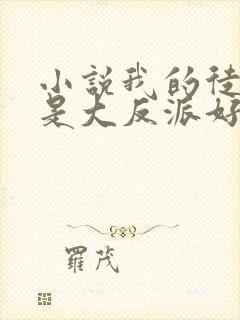 小説我的徒
是大反派好
羅茂